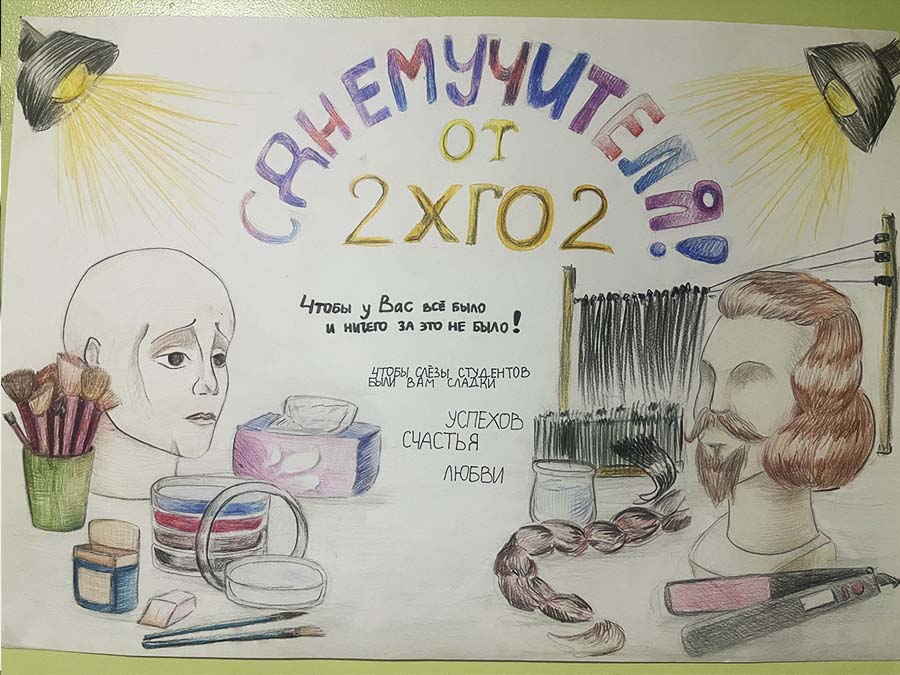 С ДНЕМ УЧИТЕЛЯ!
ОТ
2ХГО2
Чтобы у Вас всё было
и ничего за это не было!
чтобы слёзы студентов
были вам сладки
УСПЕХОВ
СЧАСТЬЯ
ЛЮБВИ